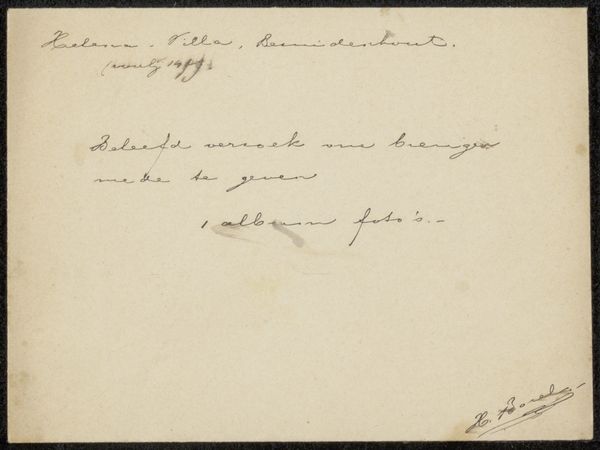 Helena. Villa, Bezuidenhout.
Beleefd verzoek om brenger
mede te geven
1 album foto's.-
H. Borel